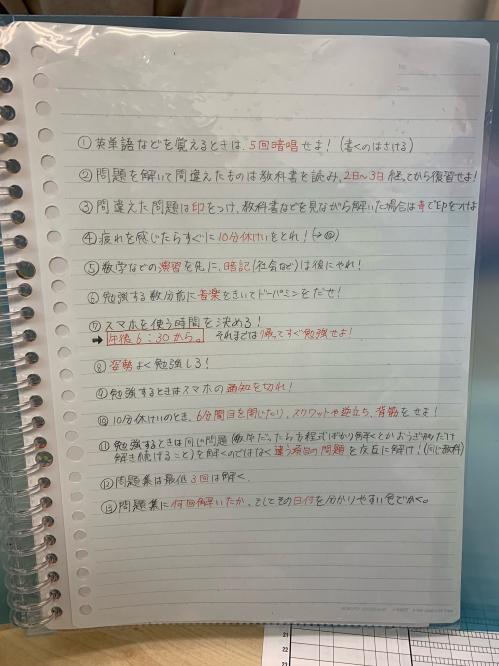 ① 英単語などを覚えるときは、5回暗唱せよ！(書くのはさける)
② 問題を解いて間違えたものは教科書を読み、2日～3日経ってから復習せよ！
③ 間違えた問題は印をつけ、教科書などを見ながら解いた場合は青で印をつけよ
④ 疲れを感じたらすぐに10分休けいをとれ！(→⑩)
⑤ 数学などの演習を先に、暗記(社会など)は後にやれ！
⑥ 勉強する数分前に音楽をきいてドーパミンをだせ！
⑦ スマホを使う時間を決める！
➡ 午後6:30から。 それまでは帰ってすぐ勉強せよ！
⑧ 姿勢よく勉強しろ！
⑨ 勉強するときはスマホの通知を切れ！
⑩ 10分休けいのとき、6分間目を閉じたり、スクワットや逆立ち、背筋をせよ！
⑪ 勉強するときは同じ問題(数学だったら方程式ばかり解くとかおうぎ形だけ
解き続けること)を解くのではなく違う項目の問題を交互に解け！(同じ教科)
⑫ 問題集は最低3回は解く.
⑬ 問題集に何回解いたか、そしてその日付を分かりやすい色でかく。
21
22
23
24